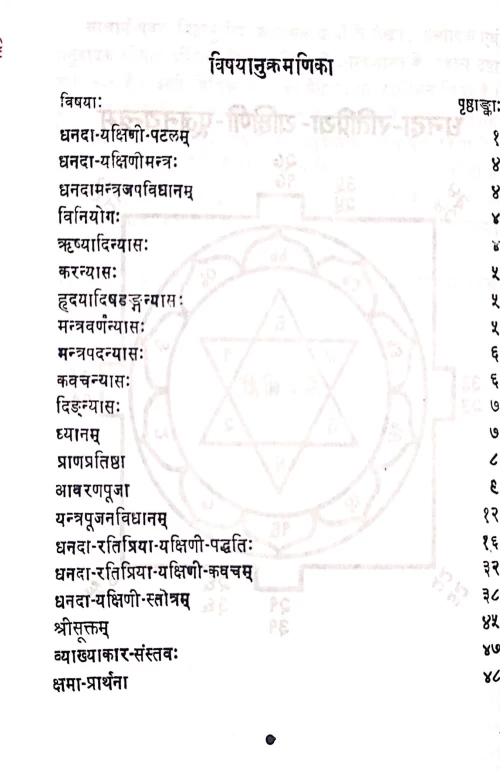 विषयानुक्रमणिका
विषयाः पृष्ठाङ्काः
धनदा-यक्षिणी-पटलम् १
धनदा-यक्षिणीमन्त्रः ४
धनदामन्त्रजपविधानम् ४
विनियोगः ४
ऋष्यादिन्यासः ४
करन्यासः ५
हृदयादिषडङ्गन्यासः ५
मन्त्रवर्णन्यासः ५
मन्त्रपदन्यासः ६
कवचन्यासः ६
दिङ्न्यासः ७
ध्यानम् ७
प्राणप्रतिष्ठा ८
आवरणपूजा ९
यन्त्रपूजनविधानम् १२
धनदा-रतिप्रिया-यक्षिणी-पद्धतिः १६
धनदा-रतिप्रिया-यक्षिणी-कवचम् ३२
धनदा-यक्षिणी-स्तोत्रम् ३८
श्रीसूक्तम् ४५
व्याख्याकार-संस्तवः ४७
क्षमा-प्रार्थना ४८